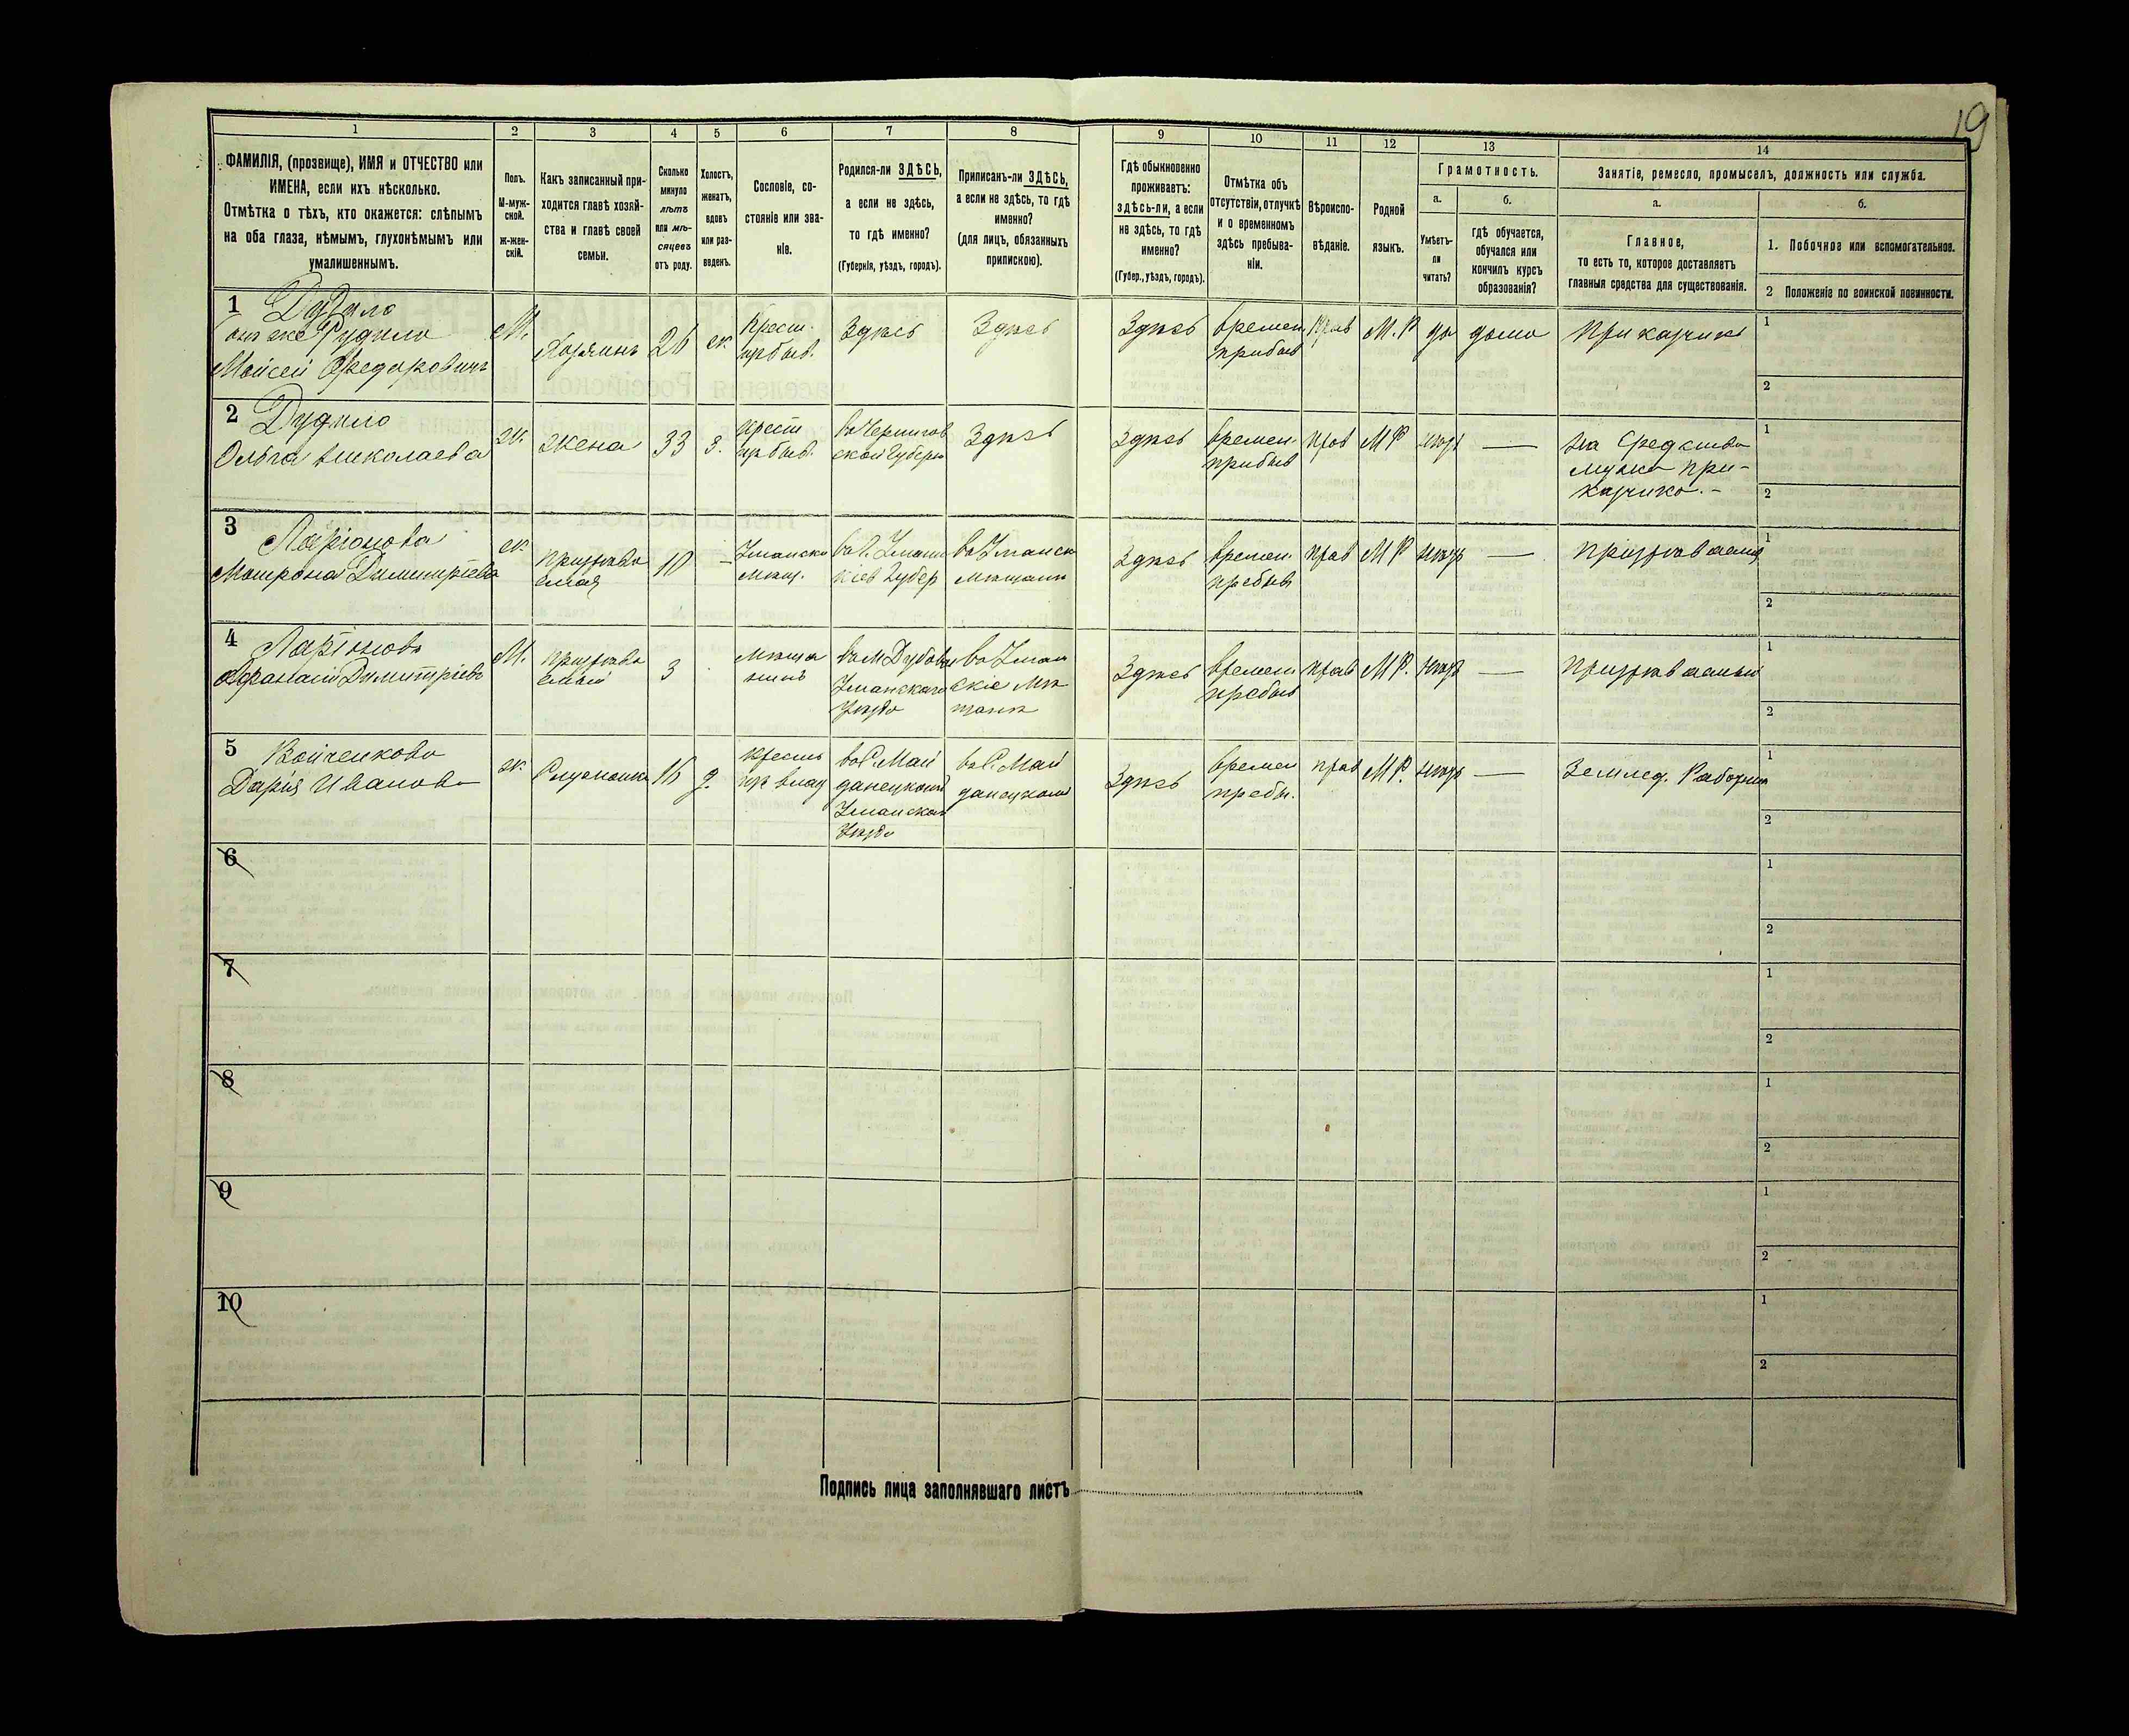 19
1
2
3
4
5
6
7
8
9
10
11
12
13
14
ФАМИЛІЯ, (прозвище), ИМЯ и ОТЧЕСТВО или
ИМЕНА, если ихъ нѣсколько.
Отмѣтка о тѣхъ, кто окажется: слѣпымъ
на оба глаза, нѣмымъ, глухонѣмымъ или
умалишеннымъ.
Полъ.
М-муж-
ской.
ж-жен-
скій.
Какъ записанный при-
ходится главѣ хозяй-
ства и главѣ своей
семьи.
Сколько
минуло
лѣтъ
или мѣ-
сяцевъ
отъ роду.
Холостъ,
женатъ,
вдовъ
или раз-
веденъ.
Сословіе, со-
стояніе или зва-
ніе.
Родился-ли ЗДѢСЬ,
а если не здѣсь,
то гдѣ именно?
(Губернія, уѣздъ, городъ).
Приписанъ-ли ЗДѢСЬ,
а если не здѣсь, то гдѣ
именно?
(для лицъ, обязанныхъ
припискою).
Гдѣ обыкновенно
проживаетъ:
здѣсь-ли, а если
не здѣсь, то гдѣ
именно?
(Губер., уѣздъ, городъ).
Отмѣтка объ
отсутствіи, отлучкѣ
и о временномъ
здѣсь пребыва-
ніи.
Вѣроиспо-
вѣданіе.
Родной
языкъ.
Грамотность.
а.
Умѣетъ-
ли
читать?
б.
гдѣ обучается,
обучался или
кончилъ курсъ
образованія?
Занятіе, ремесло, промыселъ, должность или служба.
а.
Главное,
то есть то, которое доставляетъ
главныя средства для существованія.
б.
1. Побочное или вспомогательное.
2 Положеніе по воинской повинности.
1
Моисей Федоровичъ
М.
Хозяинъ
26
ж.
Крест.
Здѣсь
Здѣсь
Здѣсь
времен
М.Р
да
дома
Прикащикъ
1
2
2
Дудило
Ольга Николаева
ж.
жена
33
з.
крест
въ Чернигов
ской Губерн
Здѣсь
Здѣсь
времен.
прав
МР
нѣтъ
—
на средства
мужа при-
кащика. –
1
2
3
Ларіонова
Матрона Димитріева
ж.
10
–
Уманск
мѣщ.
въ Г. Умани
Кіев Губер
въ Уманск
мѣщани
Здѣсь
времен
пребыв
прав
МР
нѣтъ
—
1
2
4
Ларіоновъ
Афанасій Димитріевъ
М.
3
мѣща
нинъ
Уманскаго
Уѣзда
въ Уман
скіе мѣ
щане
Здѣсь
времен
пребыв
прав
МР.
нѣтъ
—
1
2
5
Войченкова
Дарія Иванова
ж.
16
д.
крест
въ С. Май
данецкомъ
Уманскаго
Уѣзда
въ С. Май
данецкомъ
Здѣсь
времен
пребы.
прав
МР.
нѣтъ
—
Землед. Работни
1
2
6
1
2
7
1
2
8
1
2
9
1
2
10
1
2
Подпись лица заполнявшаго листъ